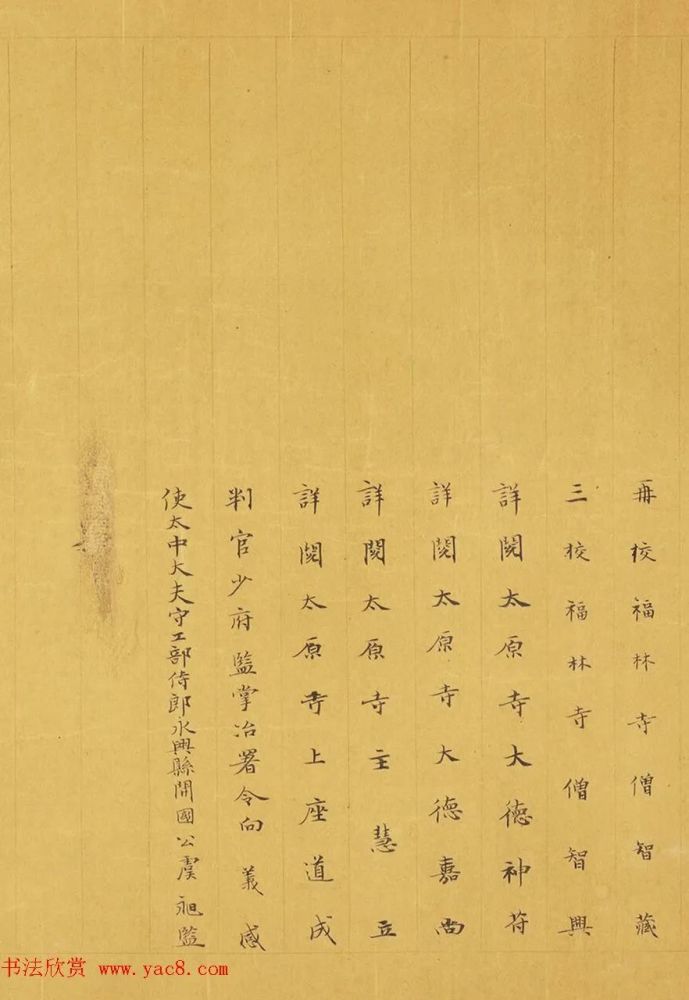 再校福林寺僧智藏
三校福林寺僧智興
詳閱太原寺大德神苻
詳閱太原寺大德嘉尚
詳閱太原寺主慧立
詳閱太原寺上座道成
判官少府監掌冶署令向義感
使太中大夫守工部侍郎永興縣開國公虞昶監
书法欣赏 www.yac8.com